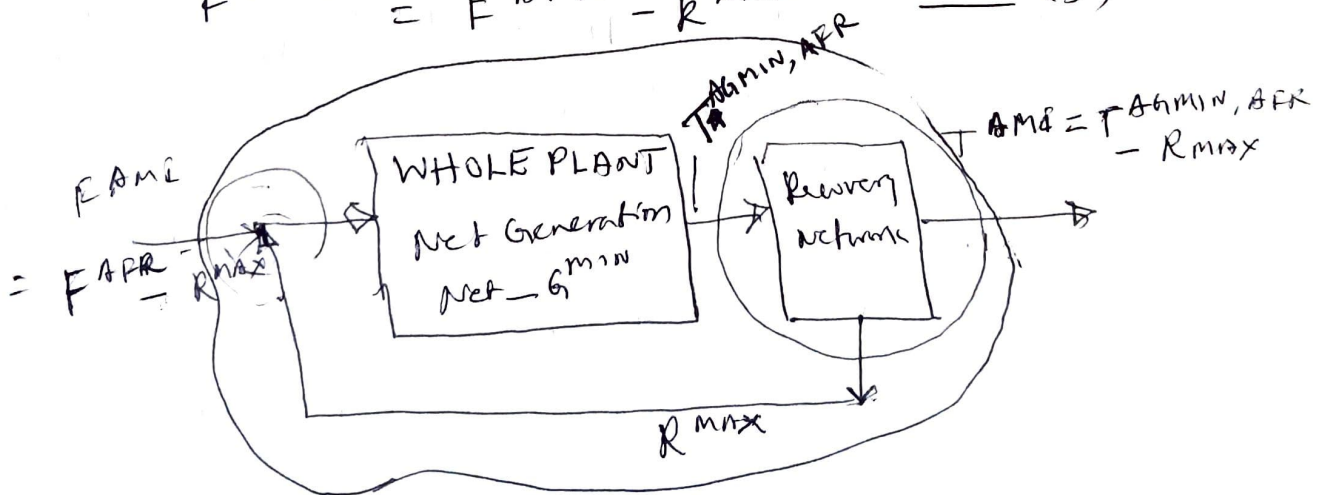 = F - R
T^AGMIN, AFR
F AMI
= F^AFR - R^MAX
WHOLE PLANT
Net Generation
Net_G^MIN
Recovery
Network
T AMI = T^AGMIN, AFR
- R MAX
R^MAX